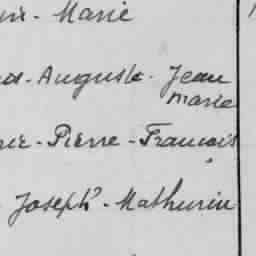 Marie
Auguste - Jean
Marie
Pierre - Francois
Joseph - Mathurin